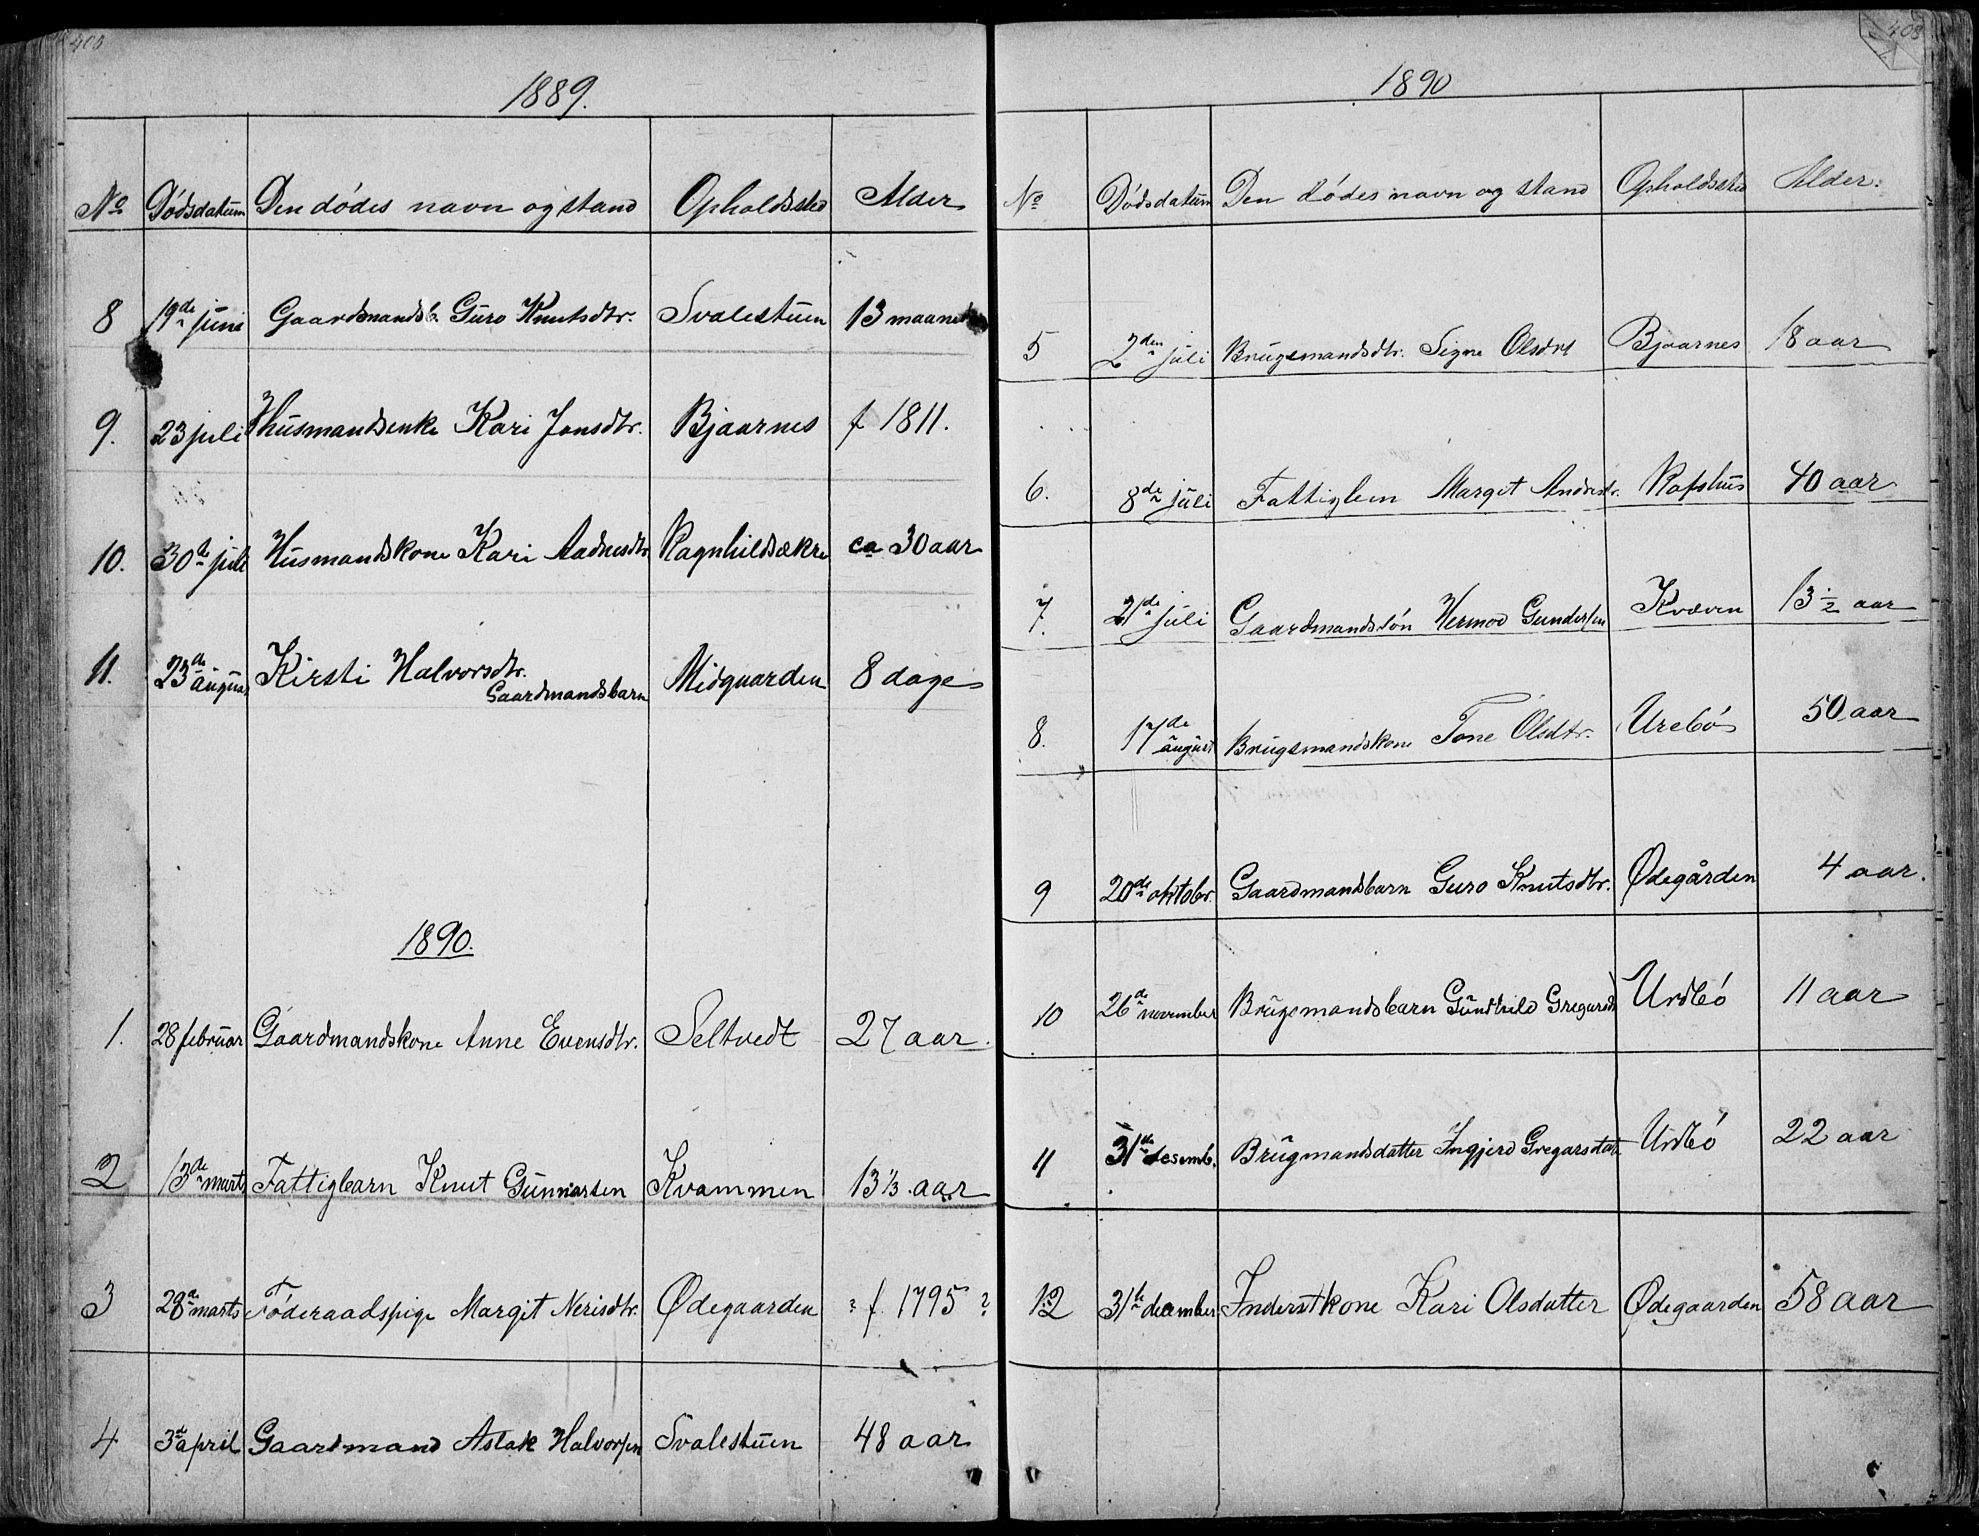 1889.
No Dødsdatum Den dødes navn og stand Opholdssted Alder
8 19de juni Gaardmandsb. Guro Knutsdtr. Svalestuen 13 maaneder
9. 23 juli Husmandsenke Kari Jonsdtr. Bjaarnes f 1811.
10. 30te juli Husmandskone Kari Aadnesdtr. Ragnhildsækre ca 30 aar
11. 23de august Kirsti Halvorsdtr. Midgaarden 8 dage
Gaardmandsbarn
1890.
1. 28 februar Gaardmandskone Anne Evensdtr. Seltvedt 27 aar.
2 13de marts Fattigbarn Knut Gunnarsen Kvammen 13 1/3 aar
3 28de marts Føderaadspige Margit Nerisdtr. Ødegaarden ? f. 1795 ?
4 3de april Gaardmand Aslak Halvorsen Svalestuen 48 aar
408
1890
No Dødsdatum Den dødes navn og stand Opholdssted Alder.
5 2den juli Brugsmandsdtr. Signe Olsdtr Bjaarnes 18 aar
6. 8de juli Fattiglem Margit Andrsdtr. Rofshus 40 aar
7. 21de juli Gaardmandssøn Hermod Gundersen Kvæven 13 1/2 aar
8. 17de august Brugsmandskone Tone Olsdtr. Urebø 50 aar
9 20de oktobr. Gaardmandsbarn Guro Knutsdtr. Ødegården 4 aar.
10 26de november Brugsmandsbarn Gunhild Gregarsdt Urdbø 11 aar
11 31te desemb. Brugmandsdatter Ingjerd Gregarsdat. Urdbø 22 aar
12 31te december Inderstkone Kari Olsdatter Ødegaarden 58 aar